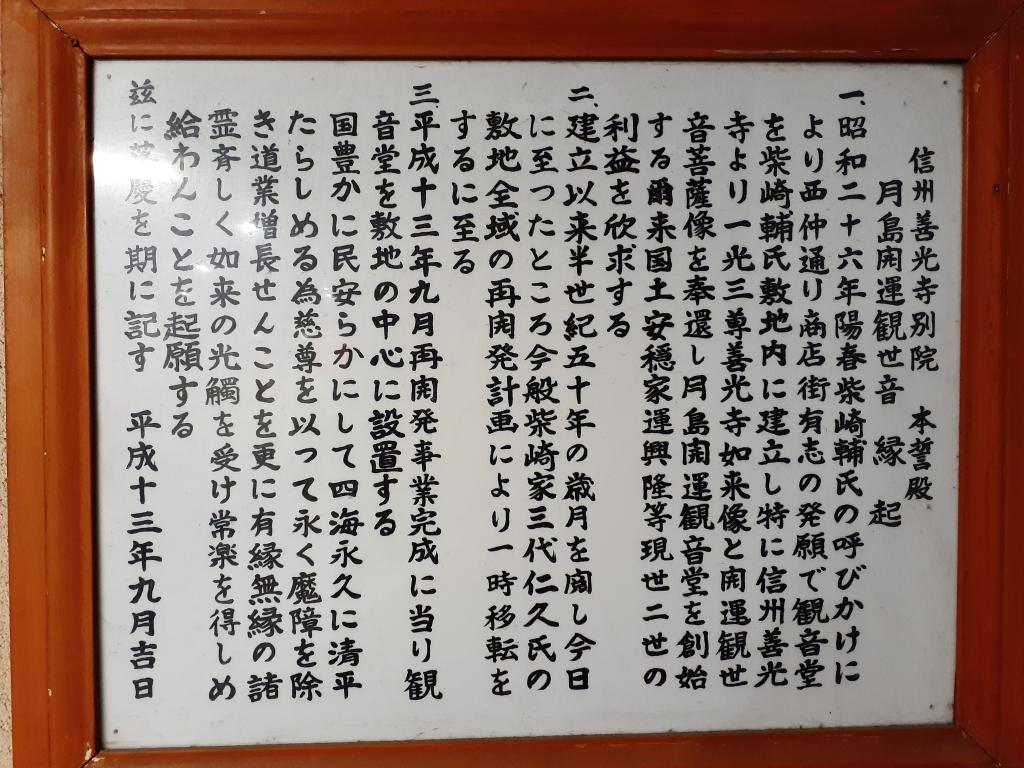 信州善光寺別院 本誓殿
月島開運観世音 縁起
一、昭和二十六年陽春柴崎輔氏の呼びかけに
より西仲通り商店街有志の発願で観音堂
を柴崎輔氏敷地内に建立し特に信州善光
寺より一光三尊善光寺如来像と開運観世
音菩薩像を奉還し月島開運観音堂を創始
する爾来国土安穏家運興隆等現世二世の
利益を欣求する
二、建立以来半世紀五十年の歳月を閲し今日
に至ったところ今般柴崎家三代仁久氏の
敷地全域の再開発計画により一時移転を
するに至る
三、平成十三年九月再開発事業完成に当り観
音堂を敷地の中心に設置する
国豊かに民安らかにして四海永久に清平
たらしめる為慈尊を以って永く魔障を除
き道業増長せんことを更に有縁無縁の諸
霊斉しく如来の光觸を受け常楽を得しめ
給わんことを起願する
玆に落慶を期に記す 平成十三年九月吉日